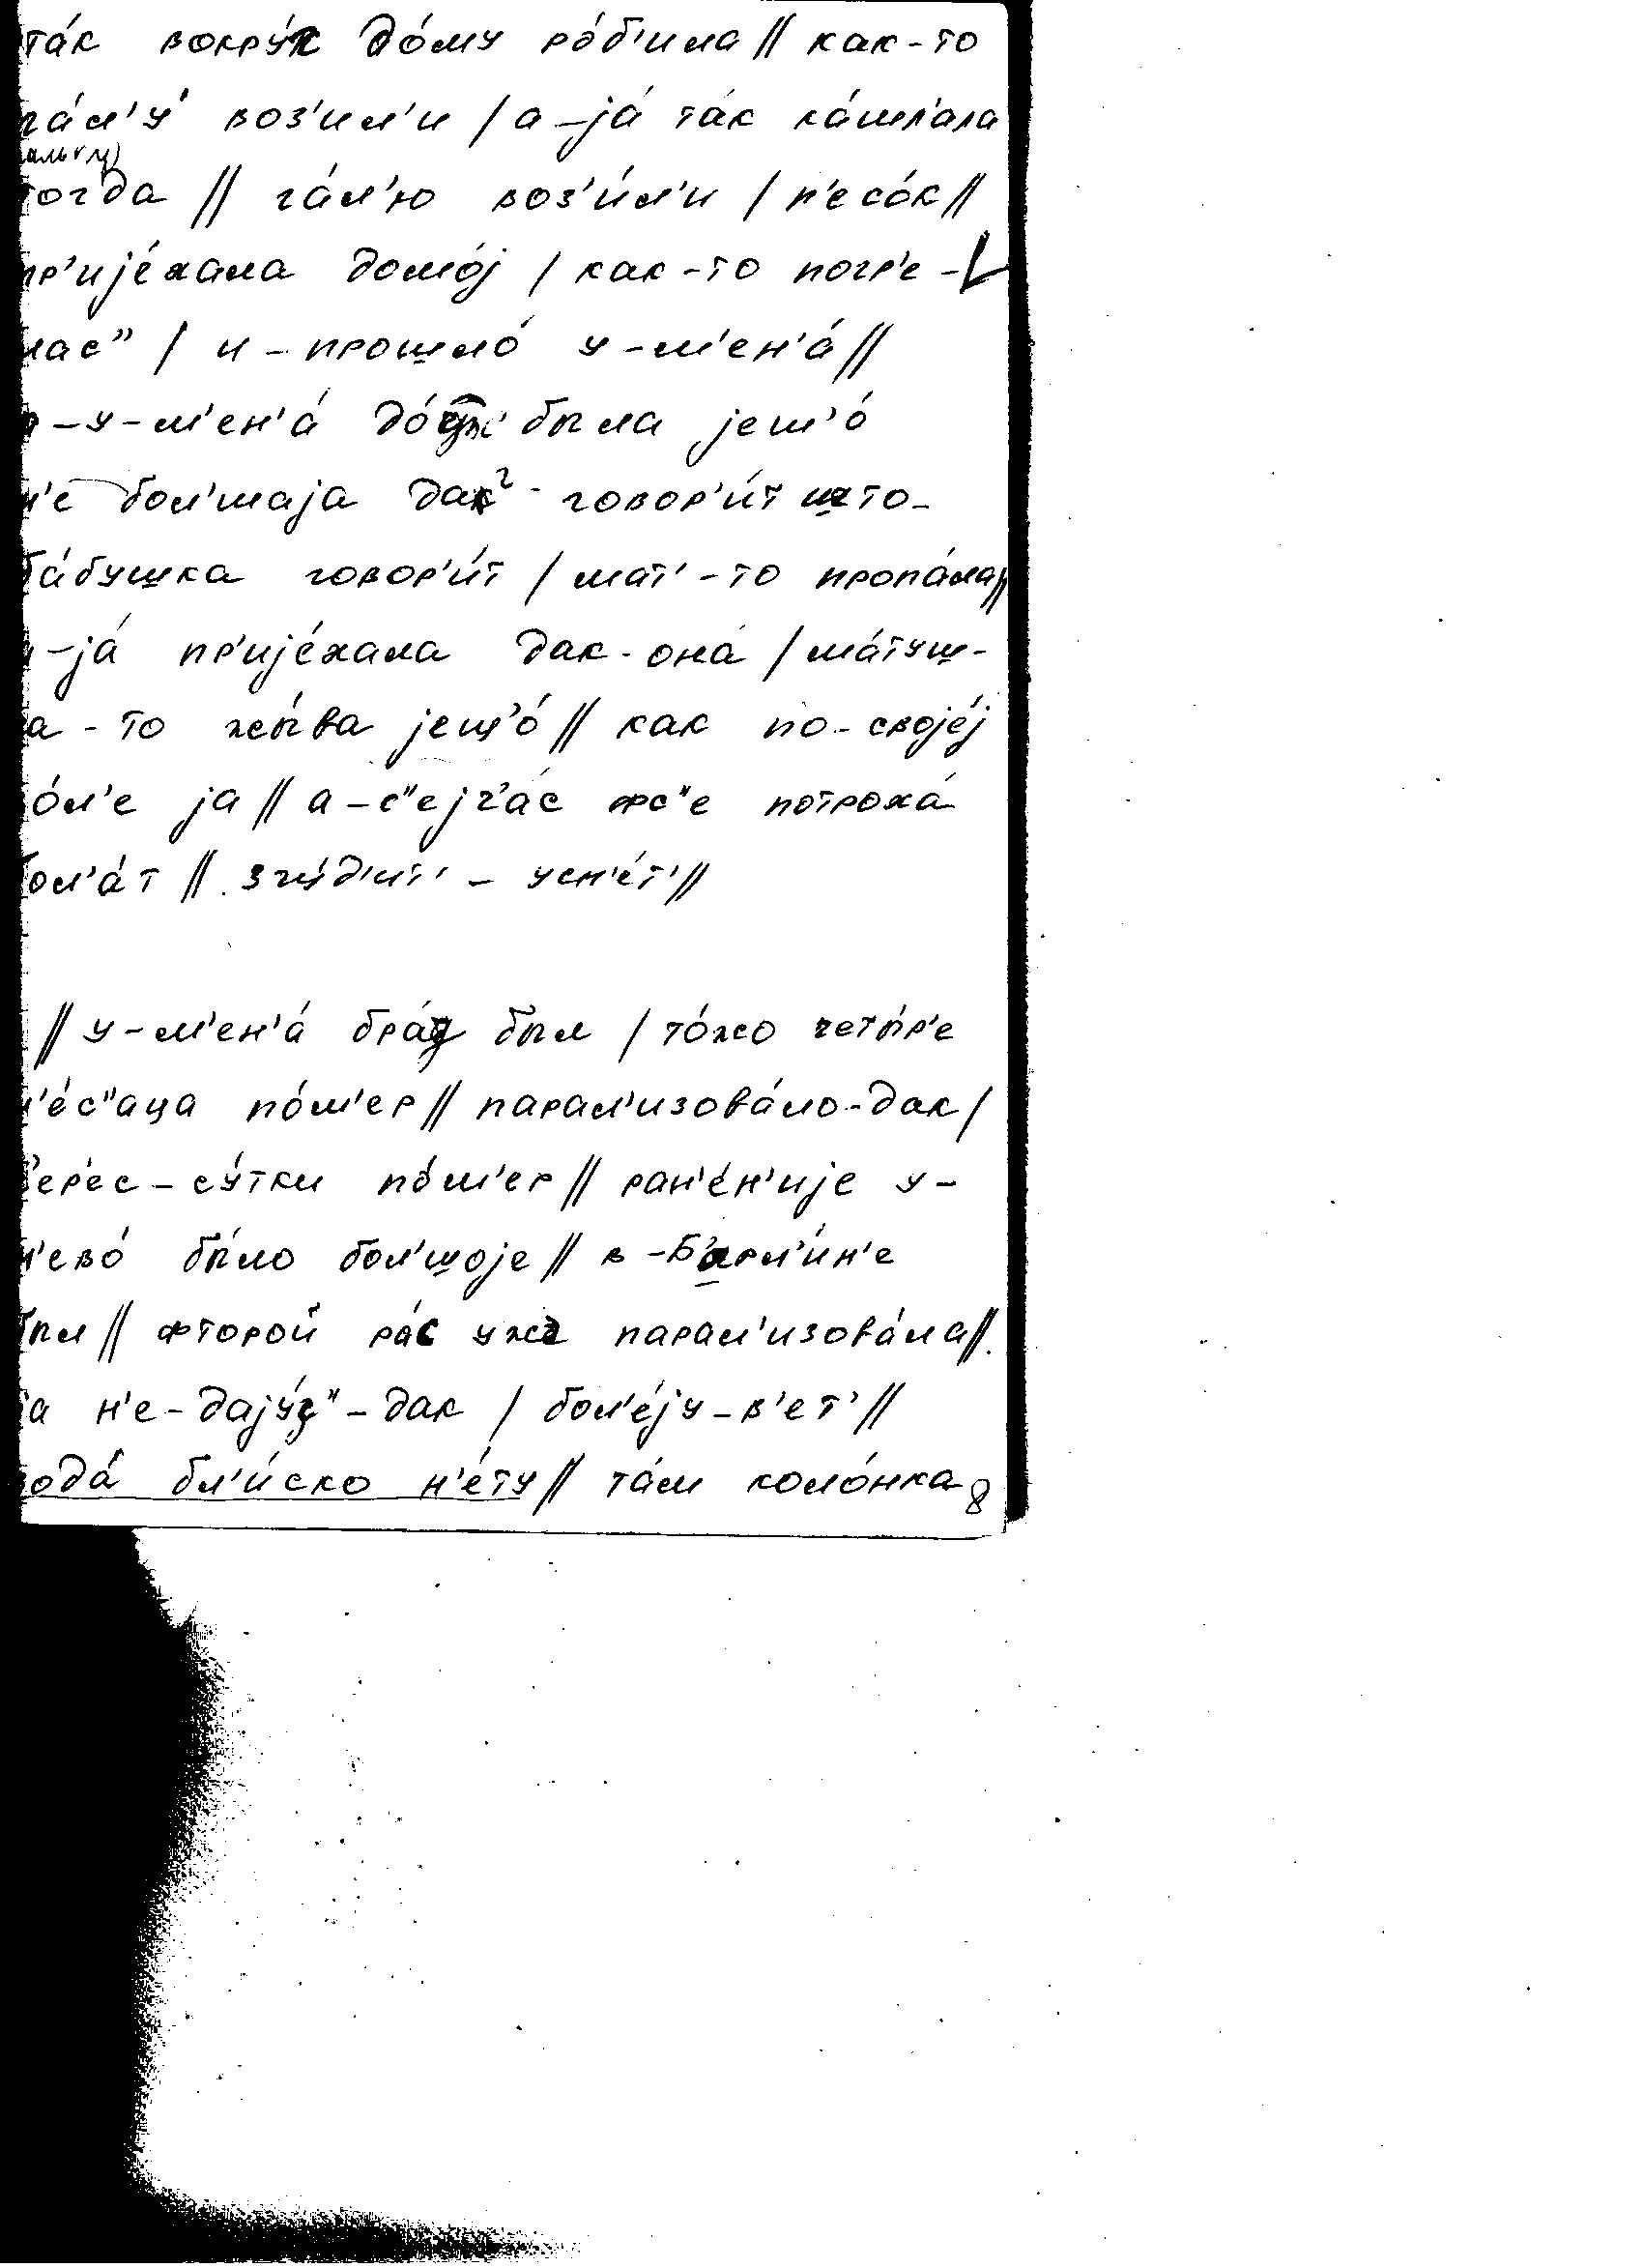 та́к вокру́к до́му ро́б'ила // как-то
га́л'у́ воз'ил'и / а-jа́ та́к ка́шл'ала
тогда // га́л'ю воз'и́л'и / п'есо́к //
пр'иjе́хала домо́j / как-то погр'е-
лас" / и-прошло́ у-м'ен'а́ //
а-у-м'ен'а́ была jеш'о́
н'е бол'шаjа дак говор'и́т што-
ба́бушка говор'и́т / мат'-то пропа́ла //
а-jа́ пр'иjе́хала дак-она́ / ма́туш-
ка-то жы́ва jещ'о́ // как по-своjе́j
во́л'е jа // а-с"еjч'а́с фс"е потроха́
бол'а́т // - усн'е́т' //

// у-м'ен'а́ бра́д был / то́жо четы́р'е
м'е́с"аца по́м'ер // парал'изова́ло-дак /
ч'ер'ес-су́тки по́м'ер // ран'е́н'иjе у-
н'ево́ бы́ло бол'шоjе // в-Б'арл'и́н'е
был // фторой ра́с уже парал'изова́ла //
да н'е-даjу́д"-дак / бол'е́jу-в'ет' //
вода́ бл'и́ско н'е́ту // та́м коло́нка
8